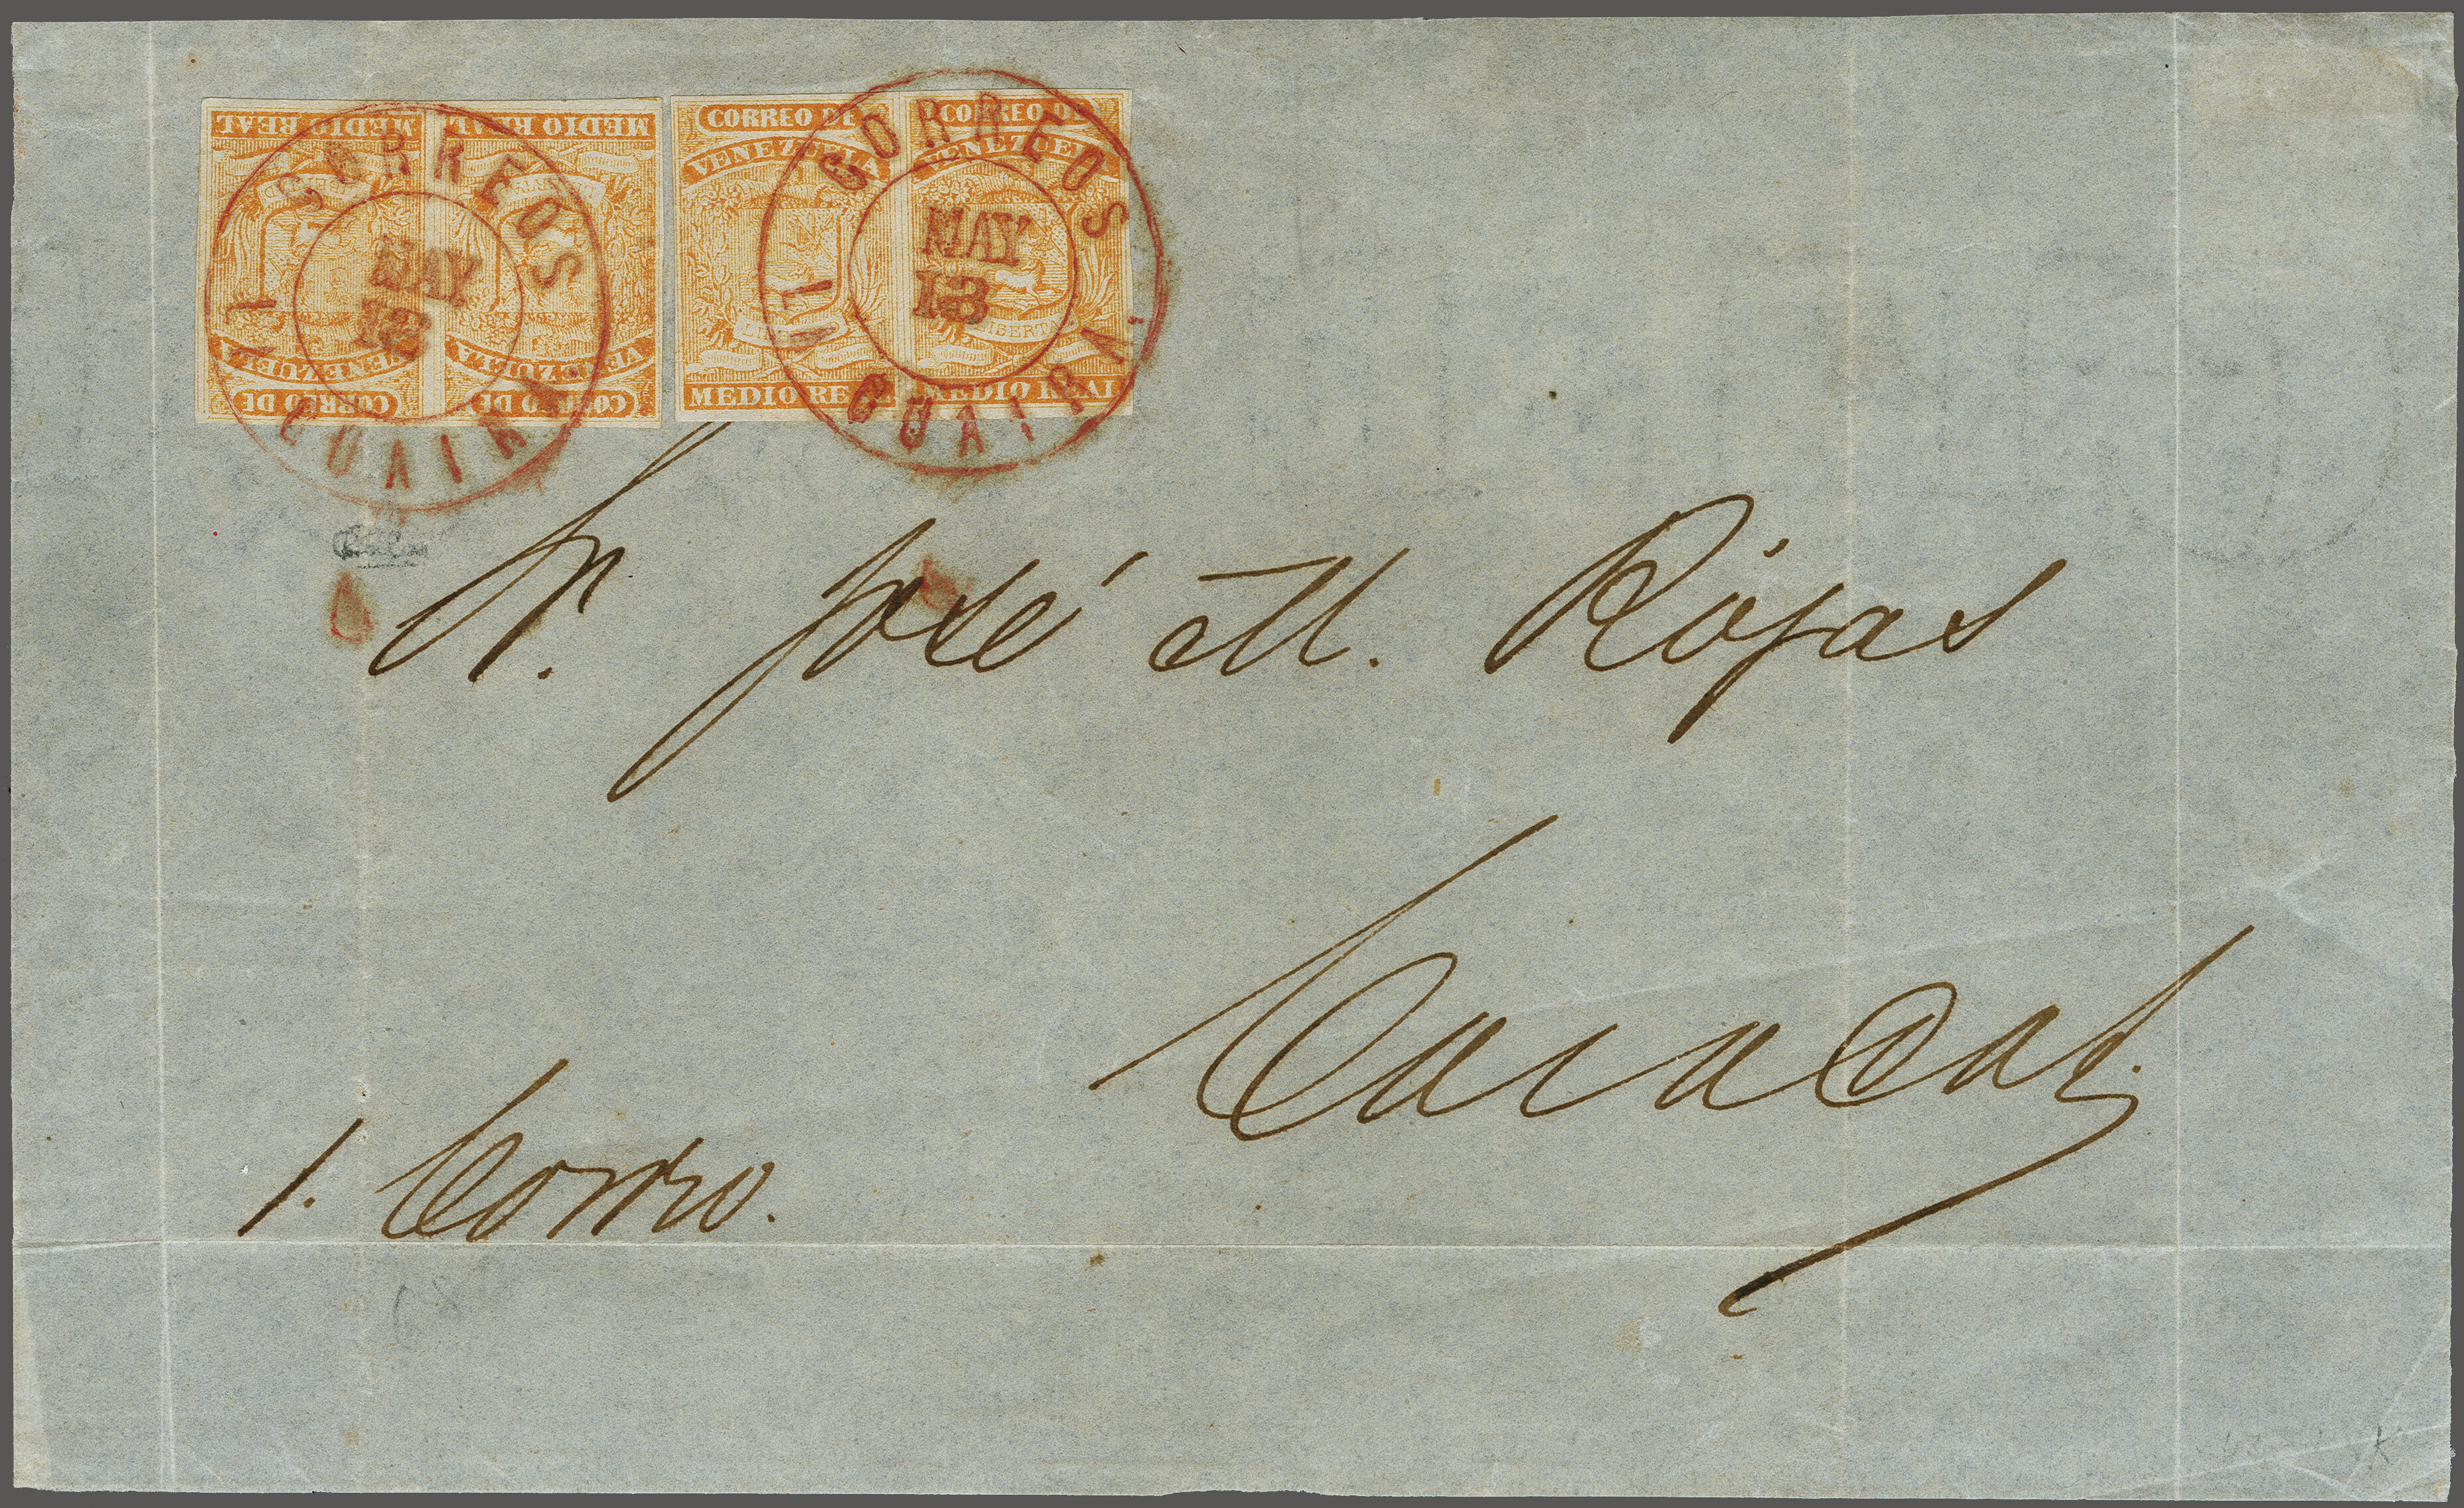 MEDIO REAL MEDIO REAL
VENEZUELA VENEZUELA
CORREO DE CORREO DE
CORREO DE CORREO DE
VENEZUELA VENEZUELA
LIBERTAD
MEDIO REAL MEDIO REAL
CORREOS
MAY
LA GUAIRA.
CORREOS
MAY
13
LA GUAIRA
Sr. José M. Rójas
Caracas.
1. Corro.